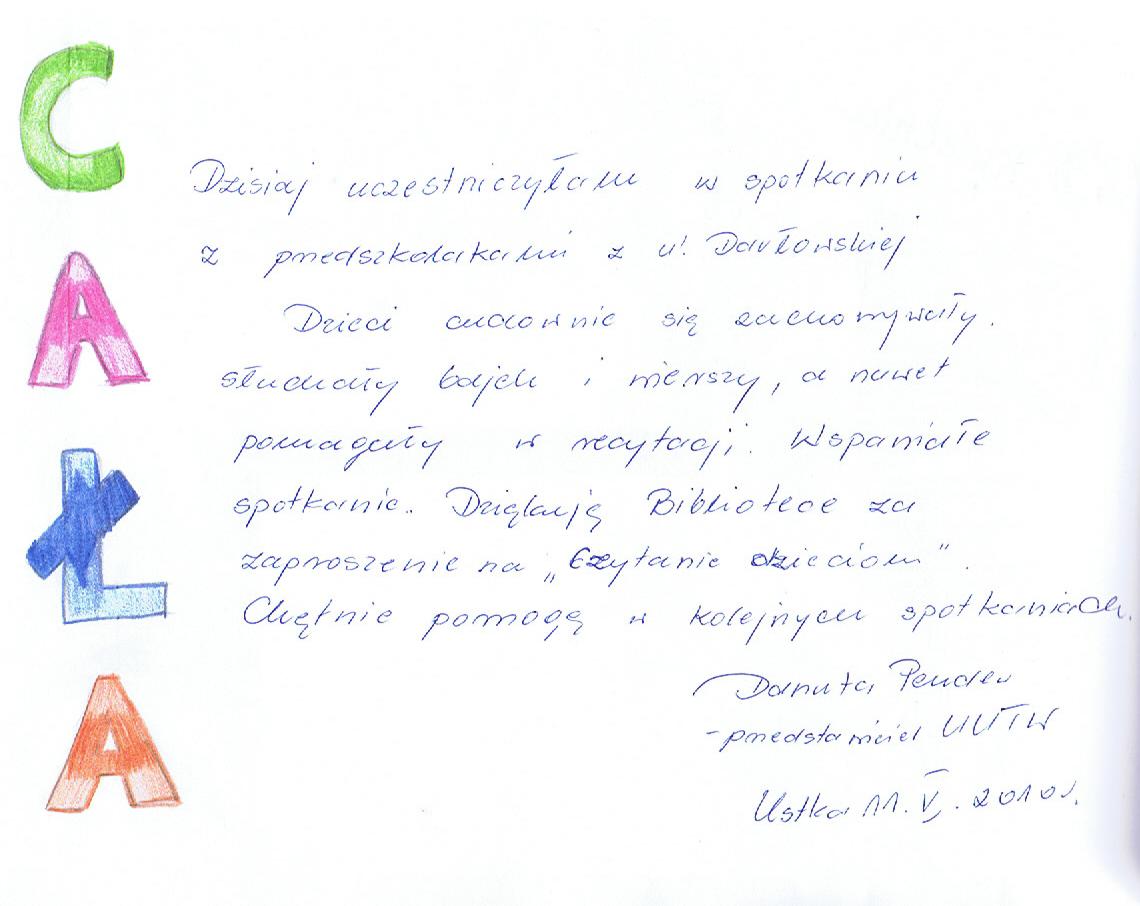 C
A
Ł
A
Dzisiaj uczestniczyłam w spotkaniu
z przedszkolakami z ul. Darłowskiej
Dzieci cudownie się zachowywały.
słuchały bajek i wierszy, a nawet
pomagały w recytacji. Wspaniałe
spotkanie. Dziękuję Bibliotece za
zaproszenie na „Czytanie dzieciom”.
Chętnie pomogę w kolejnych spotkaniach.
Danuta
- przedstawiciel UUTW
Ustka 11. V. 2010 r.